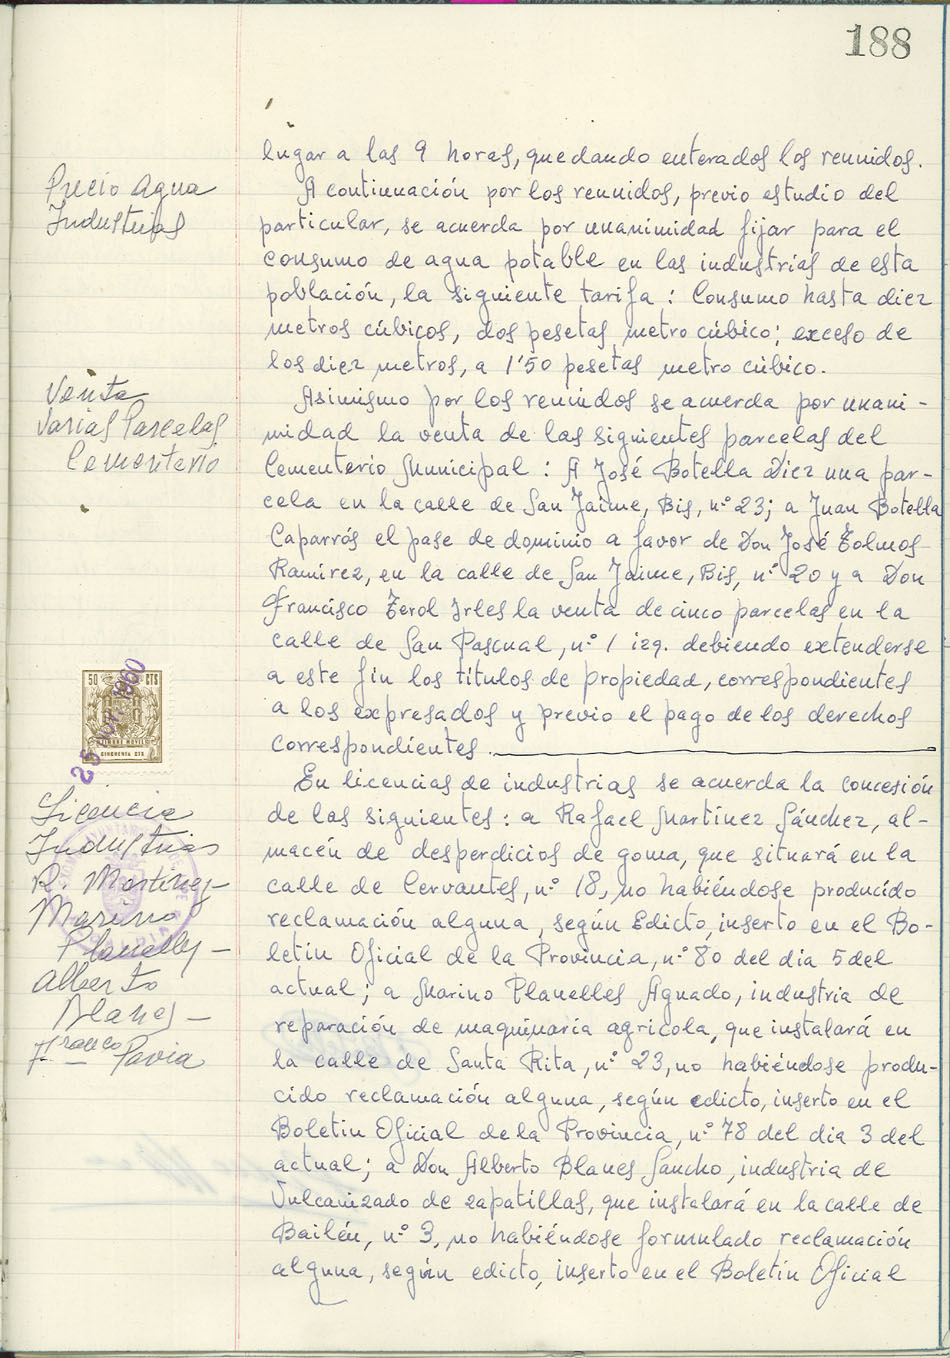 188
lugar a las 9 horas, quedando enterados los reunidos.
Precio Agua
Industrias
A continuación por los reunidos, previo estudio del
particular, se acuerda por unanimidad fijar para el
consumo de agua potable en las industrias de esta
población, la siguiente tarifa : Consumo hasta diez
metros cúbicos, dos pesetas metro cúbico; exceso de
los diez metros, a 1'50 pesetas metro cúbico.
Venta
Varias Parcelas
Cementerio
Asimismo por los reunidos se acuerda por unani-
midad la venta de las siguientes parcelas del
Cementerio Municipal : A José Botella Diez una par-
cela en la calle de San Jaime, Bis, nº 23; a Juan Botella
Caparrós el pase de dominio a favor de Don José Tolmos
Ramirez, en la calle de San Jaime, Bis, nº 20 y a Don
Francisco Terol Irles la venta de cinco parcelas en la
calle de San Pascual, nº 1 izq. debiendo extenderse
a este fin los titulos de propiedad, correspondientes
a los expresados y previo el pago de los derechos
correspondientes.
50 CTS
TIMBRE MOVIL
CINCUENTA CTS
25 NOV. 1960
Licencia
Industrias
R. Martinez-
Marino
Planelles-
Alberto
Blanes-
Franco
Pavia
En licencias de industrias se acuerda la concesión
de las siguientes : a Rafael Martínez Sánchez, al-
macén de desperdicios de goma, que situará en la
calle de Cervantes, nº 18, no habiéndose producido
reclamación alguna, según Edicto, inserto en el Bo-
letin Oficial de la Provincia, nº 80 del dia 5 del
actual; a Marino Planelles Aguado, industria de
reparación de maquinaria agricola, que instalará en
la calle de Santa Rita, nº 23, no habiéndose produ-
cido reclamación alguna, según edicto, inserto en el
Boletin Oficial de la Provincia, nº 78 del dia 3 del
actual; a Don Alberto Blanes Sancho, industria de
Vulcanizado de zapatillas, que instalará en la calle de
Bailén, nº 3, no habiéndose formulado reclamación
alguna, según edicto, inserto en el Boletín Oficial